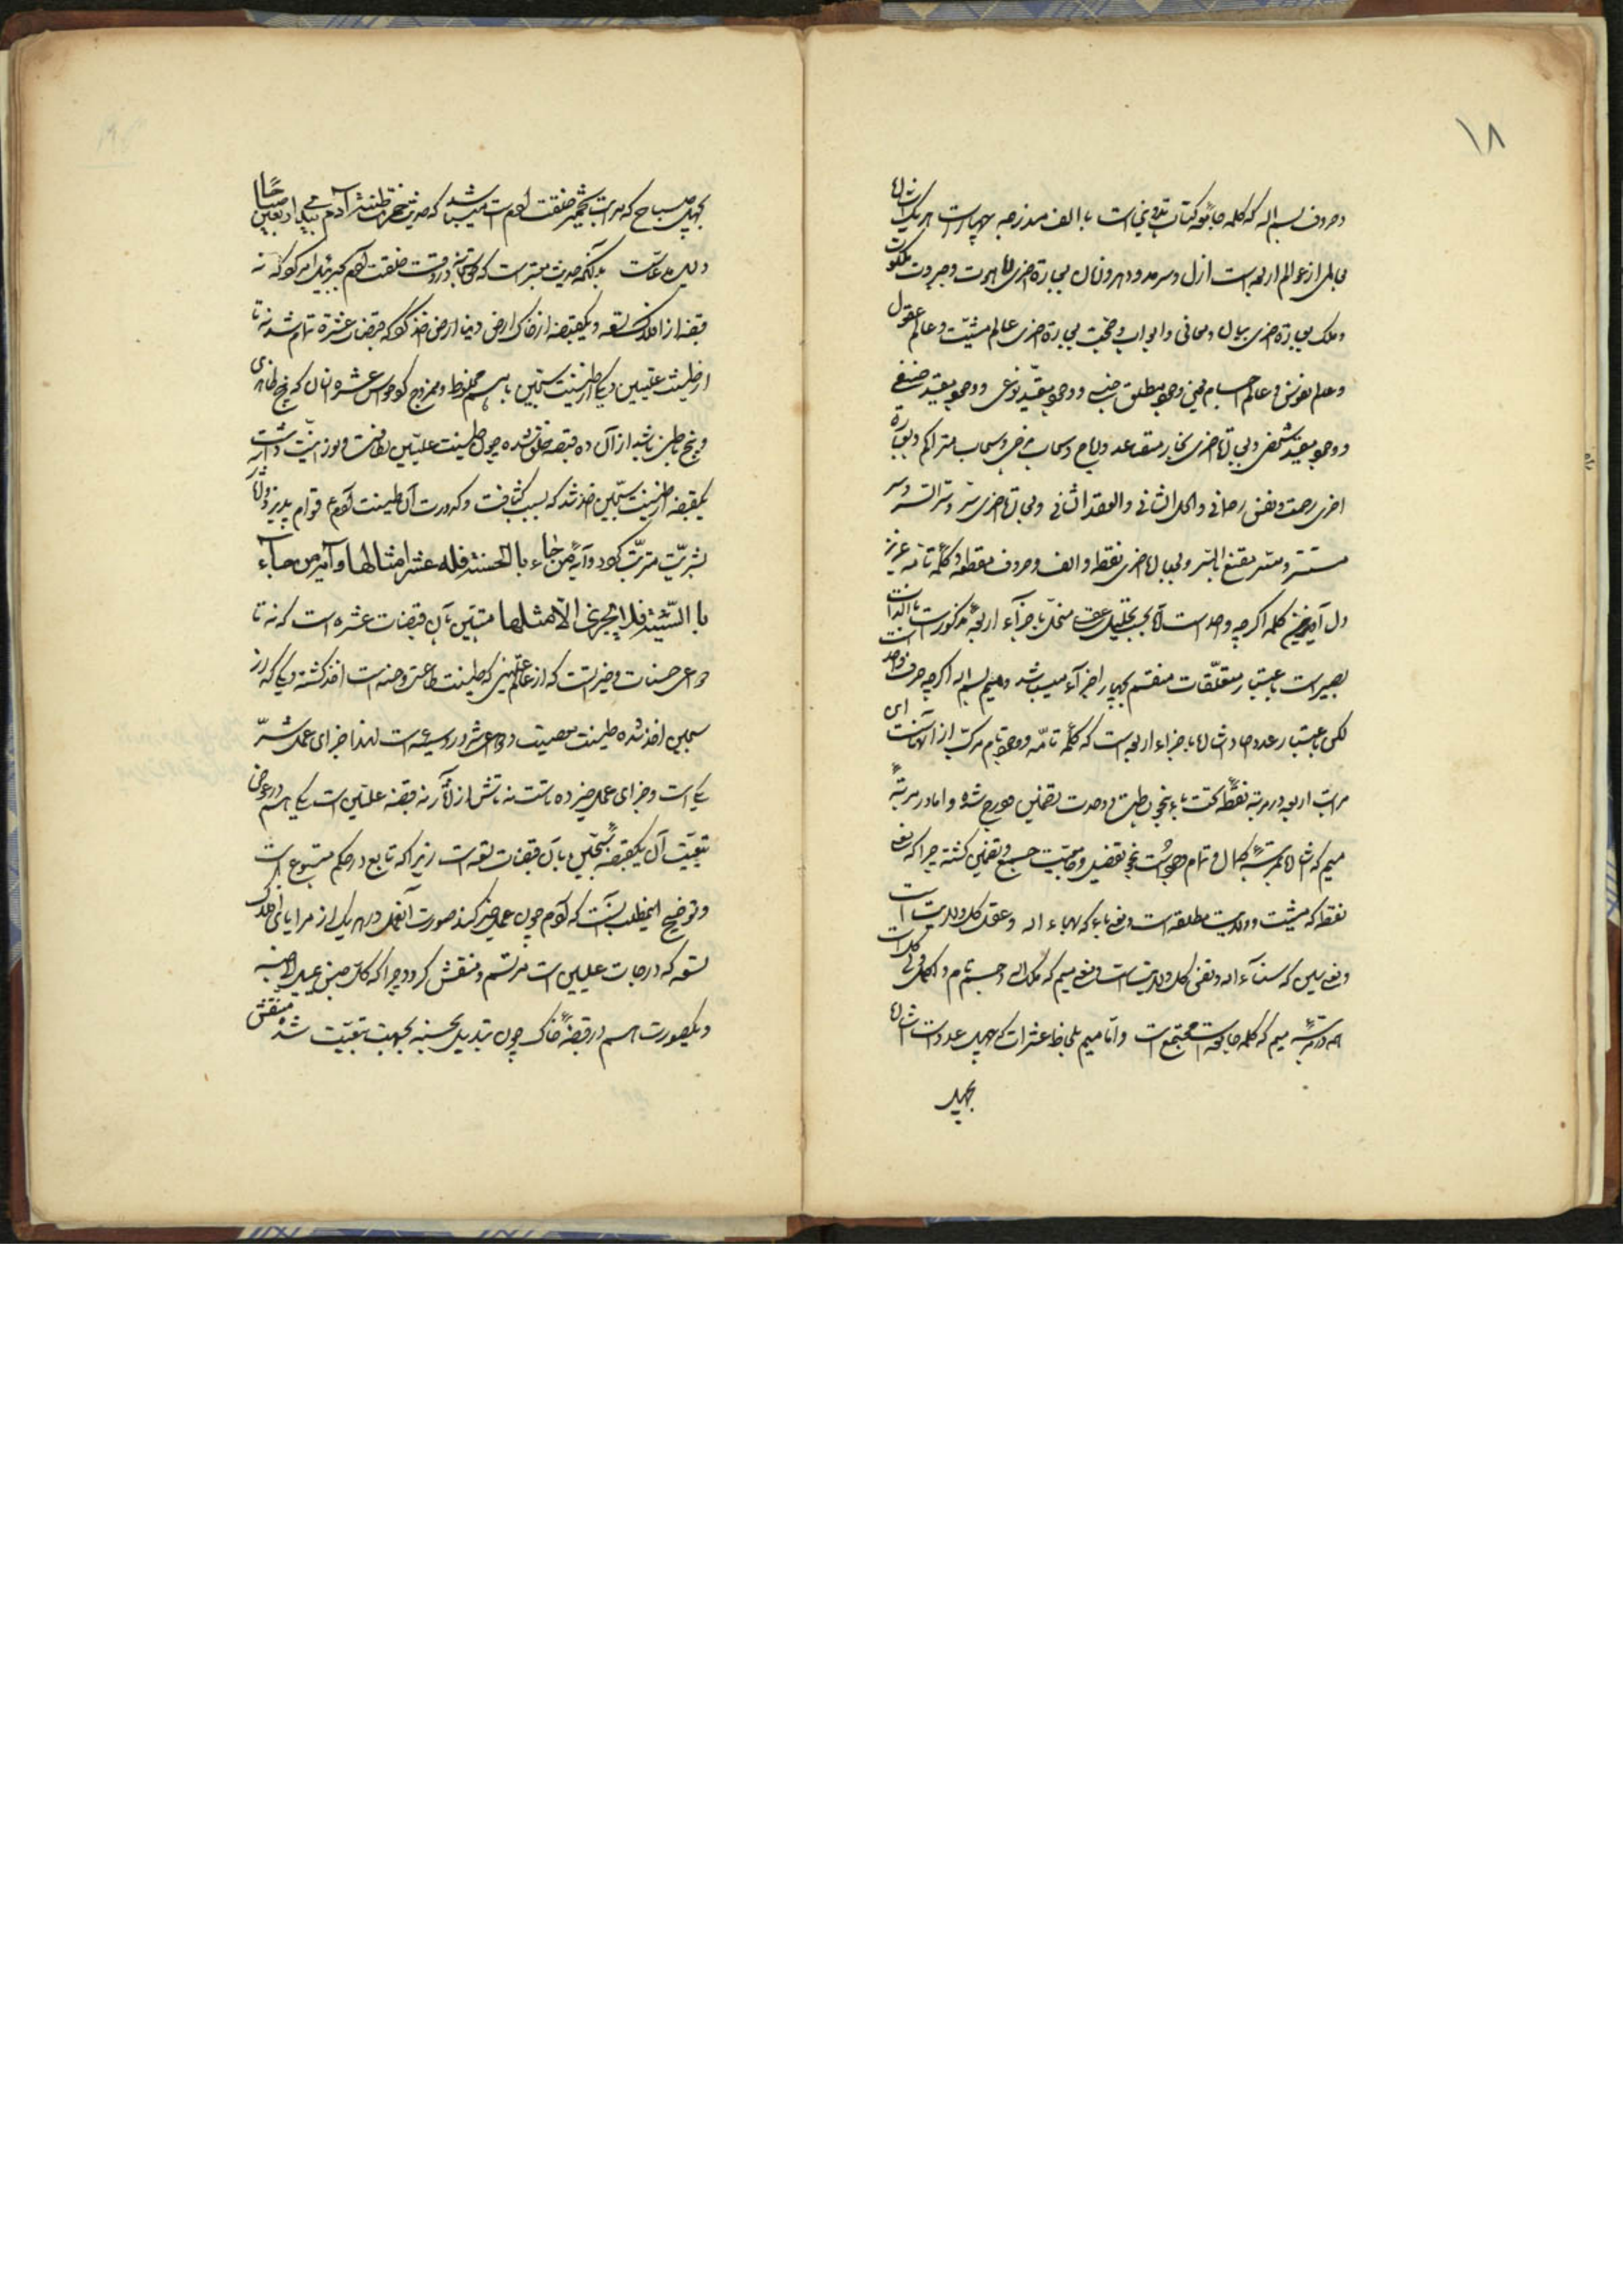 ۱۸
و حروف بسم اله که کلمه جامعه کتاب تدوینی است با الف مندرجه چهار است هر یک اشاره
بعالمی از عوالم اربعه است ازل و سرمد و دهر و زمان بعبارة اخری لاهوت و جبروت ملکوت
و ملک بعبارة اخری بیان و معانی و ابواب و حجب بعبارة اخری عالم مشیّت و عالم عقول
و عالم نفوس و عالم اجسام یعنی وجود مطلق جنسی و وجود مقیّد نوعی و وجود مقید صنفی
و وجود مقید شخصی و بعبارة اخری بخار متصاعد و ریاح و سحاب مزجی و سحاب متراکم و بعبارة
اخری رحمت و نفس رحمانی و الکل الثانی و العقد الثانی و بعبارة اخری سرّ و سرّ السر و سر
مستسر و سر مقنع بالسر و بعبارة اخری نقطه و الف و حروف مقطعه و کلمه تامه عزیز
دل کلمه اگر چه واحد است لاکن بحسب تحلیل عقلی منحل باجزآء اربعه مذکور است با الذات
بصیر است باعتبار متعلّقات منقسم بچهار اجزآء میباشد و میم بسم اله اگر چه حرف واحد است
لکن باعتبار عدد اشاره باجزاء اربعه است که کلمه تامّه و وجود تام مرکب از آنهاست ای
مراتب اربعه در مرتبه نقطه تحت باء بنحو بطون و وحدت مندرج شده و اما در مرتبه
میم که اشاره بمرتبه کمال و تمام وجود است بنحو تفصیل و جامعیت جمع گشته چرا که یعنی
نقطه که مشیت و ولایت مطلقه است و یعنی باء که بهاء اله و عقل کل و ولایت است
و یعنی سین که سنآء اله و نفس کل و ولایت است و یعنی میم که ملک اله و جسم تام و کل است
همه در مرتبه میم که کلمه جامعه است مجتمع است و اما میم بلحاظ عشرات که چهل عدد است اشاره
بچهل
بچهل صباح که مراتب تخمیر خلقت آدم است میباشد که حدیث خمرت طینة آدم بیدی اربعین صباحاً
دلیل مدعاست بدانکه حدیث معتبر است که حقتعالی در وقت خلقت آدم جبرئیل امر کرد که نه
قبضه از افلاک تسعه و یکقبضه از خاک ارض دنیا ارض اخذ کرد که قبضات عشرة تمام شد نه تا
از طینت علیین و یکی از طینت سجّین با هم مخلوط و ممزوج کرد حواس عشره انسان که پنج ظاهری
و پنج باطن باشد از آن ده قبضه خلق شده چون طینت علیّین لطافت و نورانیّت داشت
یکقبضه از طینت سجّین اخذ شد که بسبب کثافت و کدورت آن طینت آدم قوام پذیرد و آثار
بشریّت مترتب گردد و آیه من جاء با الحسنة فله عشر امثالها و آیه من جآء
با السّیئة فلا یجزی الّا مثلها متبیّن بآن قبضات عشره است که نه تا
دواعی حسنات و خیر است که از علیّین که طینت طاعت و جنه است اخذ گشته و یکی که از
سجین اخذ شده طینت معصیت و دواعی شر در روی است لهذا جزای عمل شرّ
یکی است و جزای عمل خیر ده تاست نه تاش از آثار نه قبضه علّیین است یکی هم در عوض
تبعیّت آن یکقبضه سجّین بآن قبضات تسعه است زیرا که تابع در حکم متبوع است
و توضیح اینمطلب آنست که آدم چون عمل خیر کند صورت آنعمل در هر یک از مرایای افلاک
تسعه که درجات علیین است مرتسم و منتقش گردد چرا که کل جنس یمیل الی جنسه
و یکصورت هم در قبضه خاک چون تبدیل بحسنه بجهت تبعیّت شد منتقش